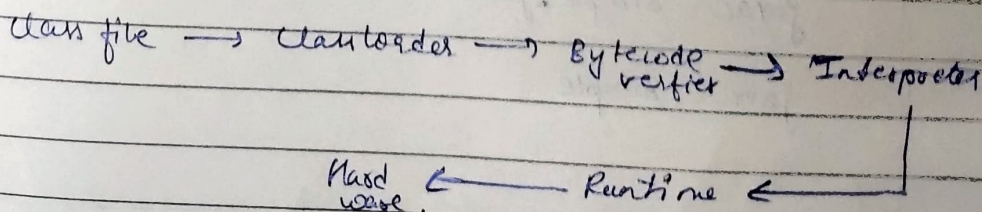 Class file → Classloader → Bytecode verifier → Interpreter
Hard ware. ← Runtime ←